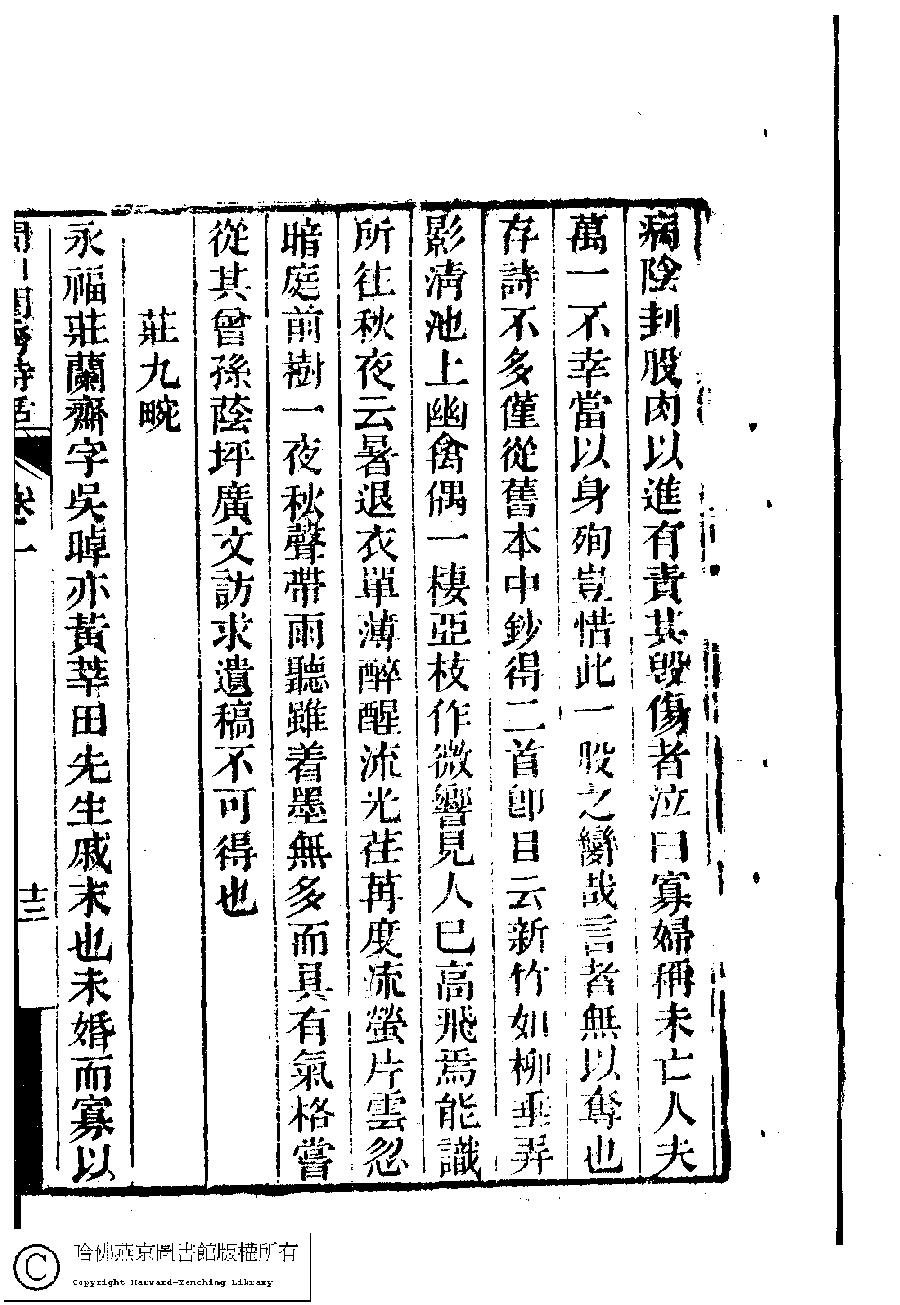 病陰刲股肉以進有責其毀傷者泣曰寡婦稱未亡人夫
萬一不幸當以身殉豈惜此一股之臠哉言者無以奪也
存詩不多僅從舊本中鈔得二首卽目云新竹如柳垂弄
影清池上幽禽偶一棲亞枝作微響見人已高飛焉能識
所往秋夜云暑退衣單薄醉醒流光荏苒度流螢片雲忽
暗庭前樹一夜秋聲帶雨聽雖着墨無多而具有氣格嘗
從其曾孫蔭坪廣文訪求遺稿不可得也
莊九畹
永福莊蘭齋字吳㟽亦黃莘田先生戚末也未婚而寡以
閨秀詩話 卷一 十三
哈佛燕京圖書館版權所有
Copyright Harvard-Yenching Library